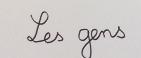 Les gens